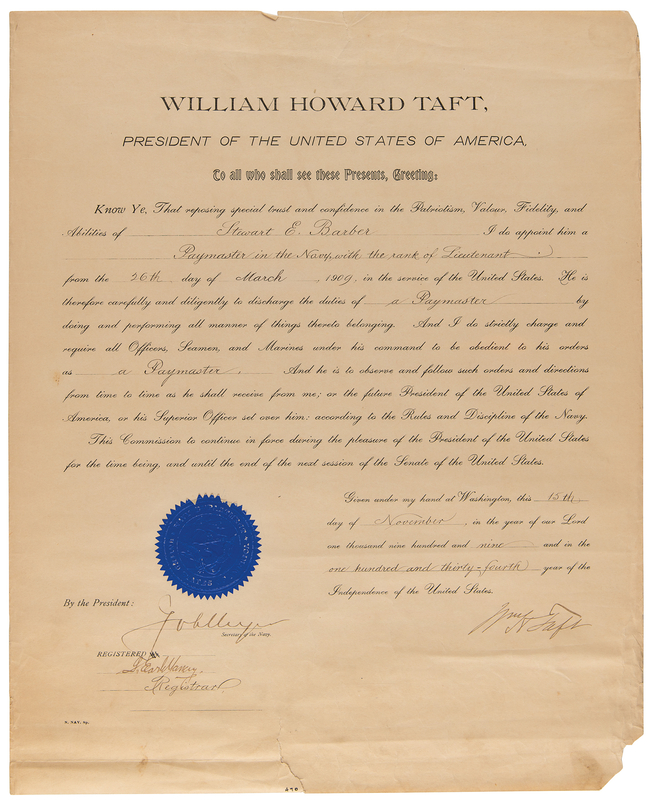 WILLIAM HOWARD TAFT,
PRESIDENT OF THE UNITED STATES OF AMERICA,
To all who shall see these Presents, Greeting:
Know Ye, That reposing special trust and confidence in the Patriotism, Valour, Fidelity, and
Abilities of Stewart E. Barber I do appoint him a
Paymaster in the Navy, with the rank of Lieutenant
from the 26th day of March, 1909, in the service of the United States. He is
therefore carefully and diligently to discharge the duties of a Paymaster by
doing and performing all manner of things thereto belonging. And I do strictly charge and
require all Officers, Seamen, and Marines under his command to be obedient to his orders
as a Paymaster. And he is to observe and follow such orders and directions
from time to time as he shall receive from me; or the future President of the United States of
America, or his Superior Officer set over him: according to the Rules and Discipline of the Navy.
This Commission to continue in force during the pleasure of the President of the United States
for the time being, and until the end of the next session of the Senate of the United States.
Given under my hand at Washington, this 15th
day of November, in the year of our Lord
one thousand nine hundred and nine and in the
one hundred and thirty-fourth year of the
Independence of the United States.
By the President:
Wm H Taft
Secretary of the Navy.
REGISTERED
Registrar.